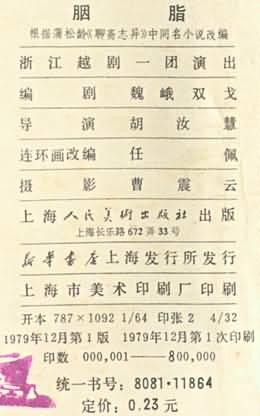 胭脂
根据蒲松龄《聊斋志异》中同名小说改编
浙江越剧一团演出
编剧 魏峨 双戈
导演 胡汝慧
连环画改编 任佩
摄影 曹震云
上海人民美術出版社 出版
上海长乐路672弄33号
新华书店上海发行所发行
上海市美术印刷厂印刷
开本 787×1092 1/64 印张 2 4/32
1979年12月第1版 1979年12月第1次印刷
印数 000,001——800,000
统一书号：8081·11864
定价：0.23元